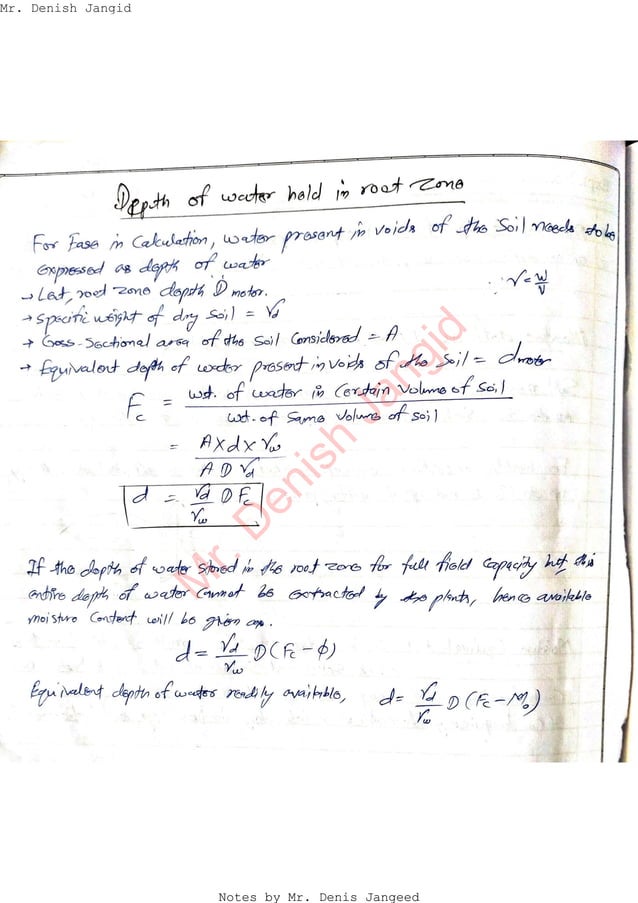 Mr. Denish Jangid
Depth of water held in root zone
For Ease in Calculation, water present in voids of the Soil needs to be
expressed as depth of water
→ Let, root zone depth D meter.
∵ γ = W/V
→ Specific weight of dry Soil = γd
→ Cross-Sectional area of the Soil Considered = A
→ Equivalent depth of water present in voids of the Soil = d meter
Fc = wt. of water in Certain Volume of Soil / wt. of Same Volume of soil
= A X d X γw / A D γd
d = γd/γw D Fc
If the depth of water stored in the root zone for full field Capacity but this
entire depth of water Cannot be extracted by the plants, hence available
moisture Content will be given as.
d = γd/γw D (Fc - ϕ)
Equivalent depth of water readily available, d = γd/γw D (Fc - Mo)
Mr. Denish Jangid
Notes by Mr. Denis Jangeed